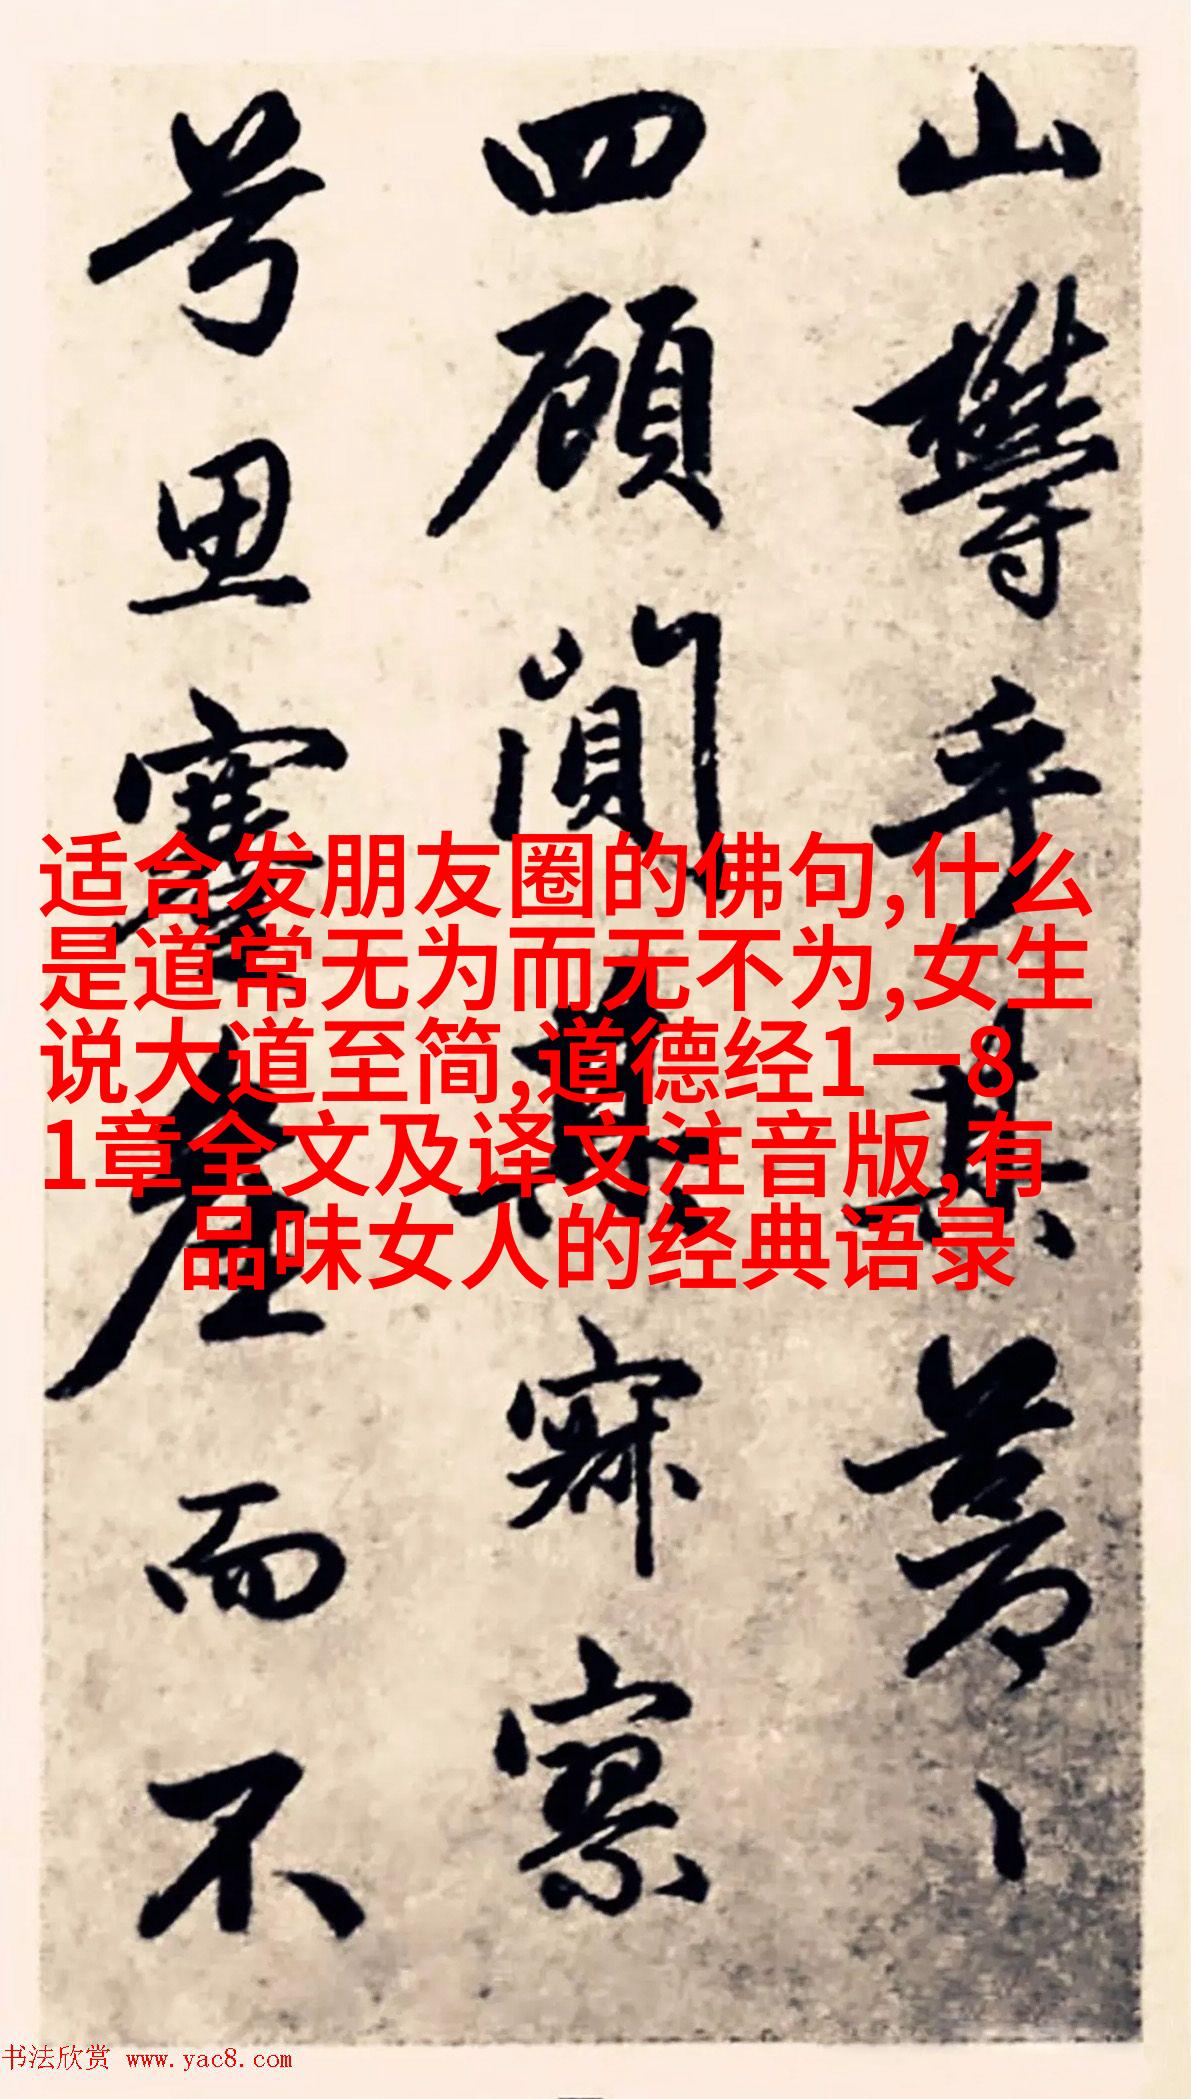 山鬱乎其蒼〻
四顧闃其寂寥
兮思蹇產而不
适合发朋友圈的佛句,什么
是道常无为而无不为,女生
说大道至简,道德经1一8
1章全文及译文注音版,有
品味女人的经典语录
书法欣赏 www.yac8.com